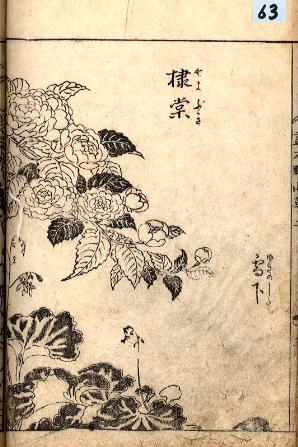 63
棣棠
やまぶき
雪下
ゆきのした